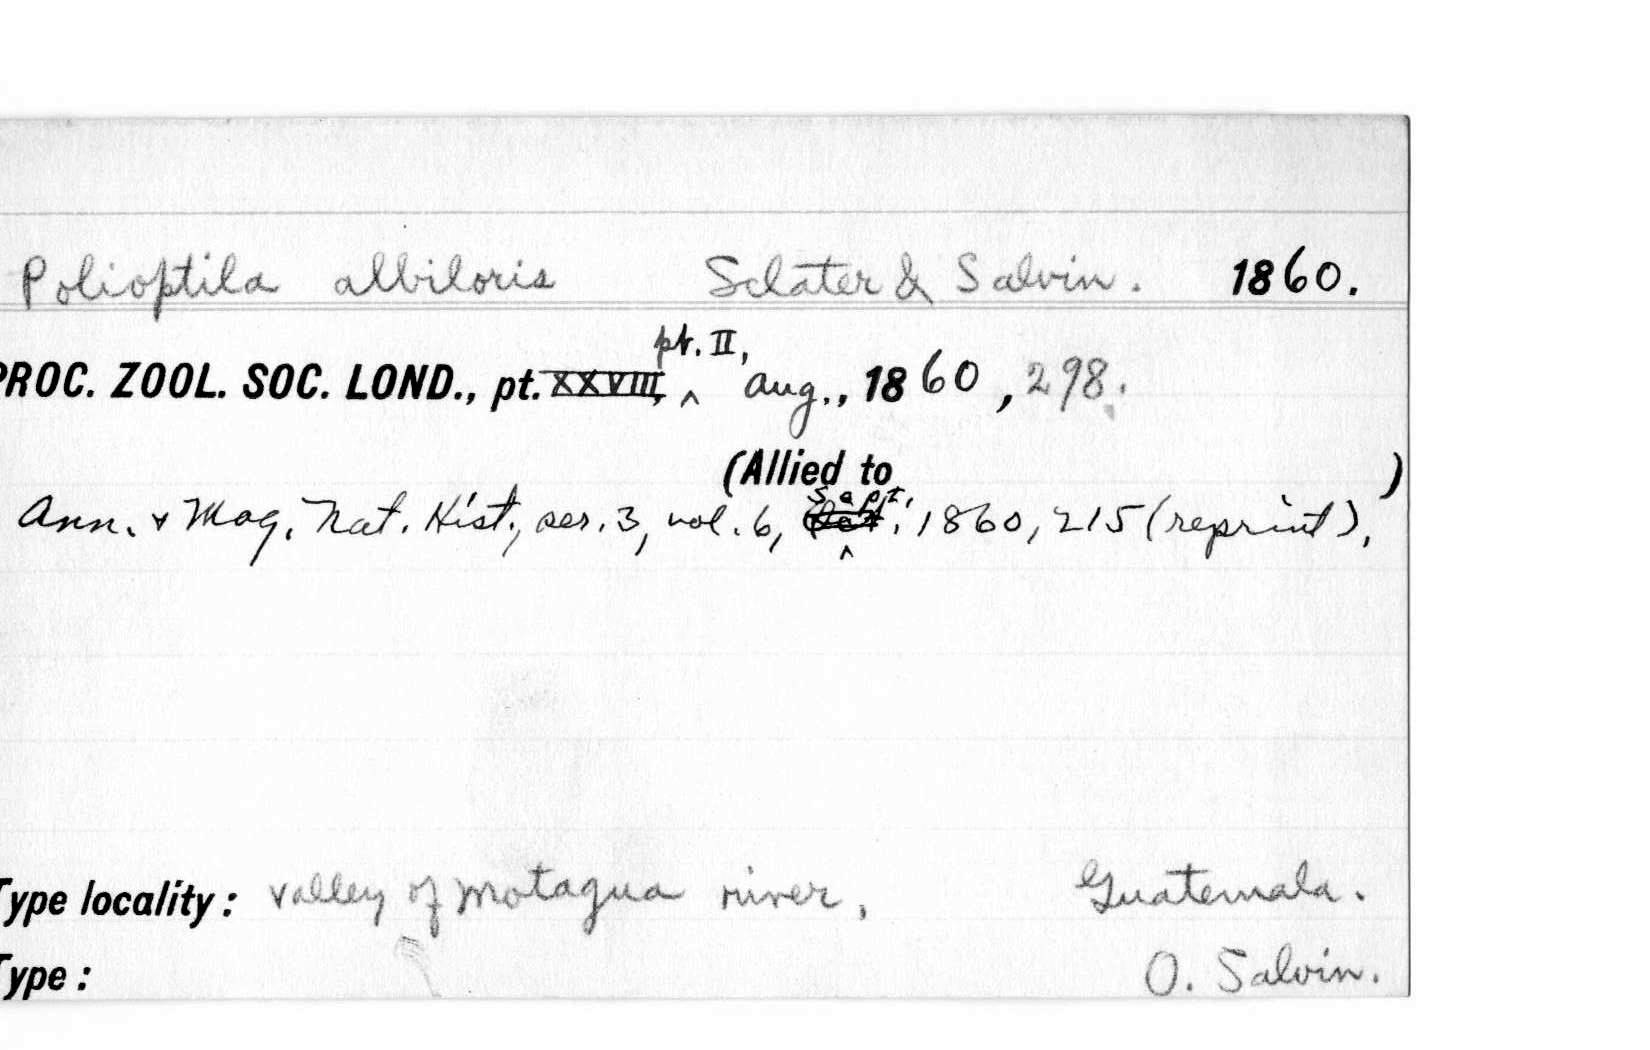 Polioptila albiloris Sclater & Salvin. 1860.
pt. II,
PROC. ZOOL. SOC. LOND., pt. XXVIII, ^ aug., 1860, 298.
(Allied to )
Sept.
Ann. & Mag. Nat. Hist., ser. 3, vol. 6, Oct. ^ 1860, 215 (reprint).
Type locality: valley of Motagua river, Guatemala.
Type: O. Salvin.